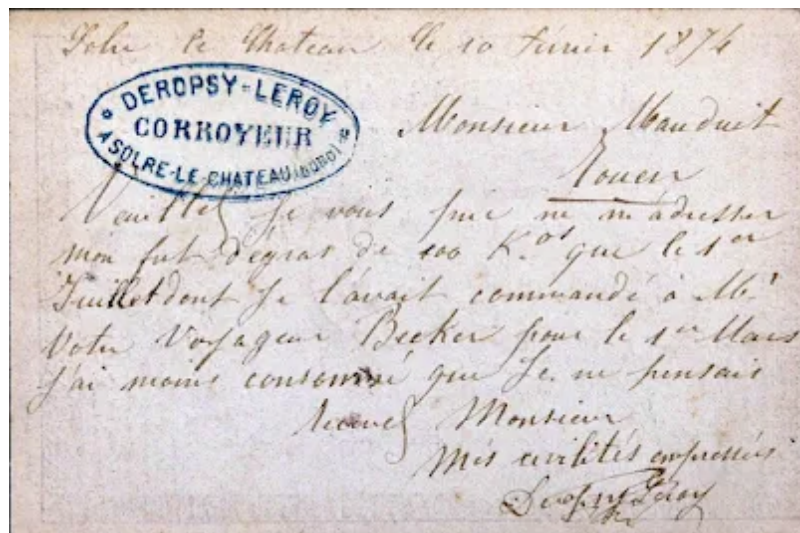 Solre le Chateau le 10 février 1874
DEROPSY-LEROY
CORROYEUR
A SOLRE-LE-CHATEAU (NORD)
Monsieur Mauduit
Rouen
Veuillez je vous prie ne m'adresser
mon fut dégras de 100 K.os que le 1er
Juillet dont je l'avait commandé à Mr
Votre Voyageur Becker pour le 1er Mars
j'ai moins consommé que je ne pensais
Recevez Monsieur
Mes civilités empressées
Deropsy Leroy